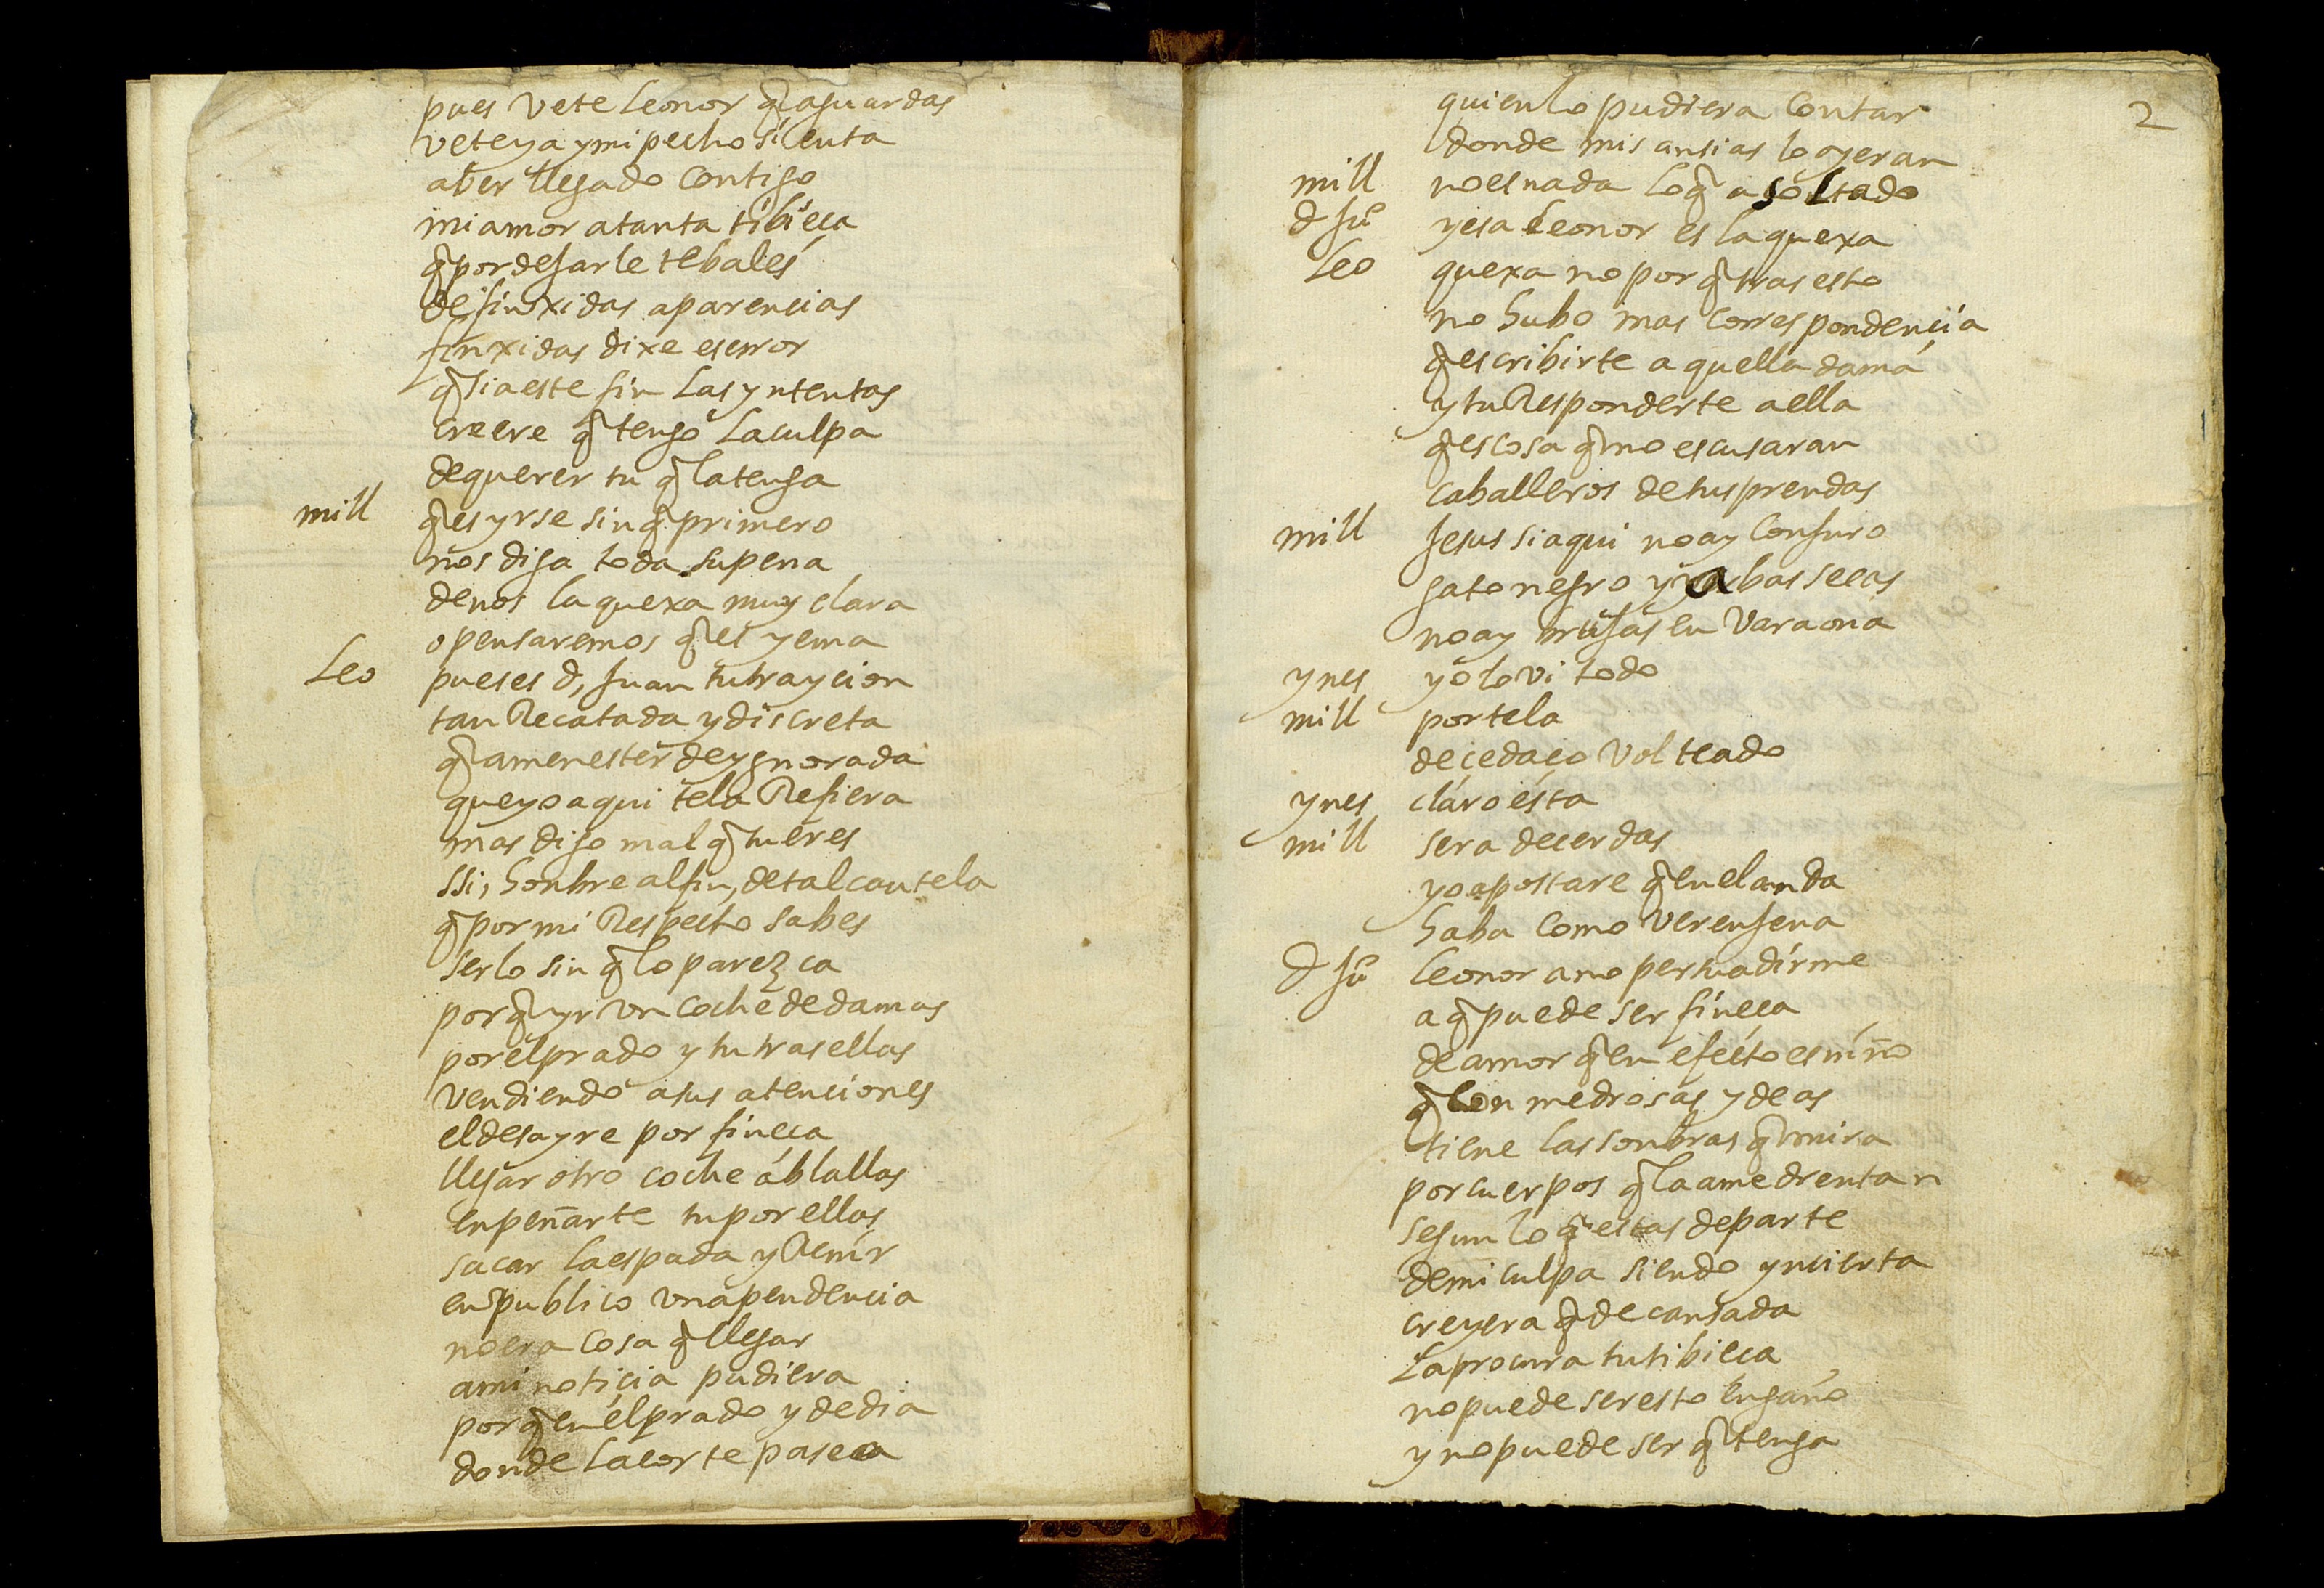 pues vete leonor q̃ aguardas
vete ya y mi pecho sienta
aber llegado contigo
mi amor a tanta tibieça
q̃ por dejarle te bales
de finxidas aparencias
finxidas dixe es error
q̃ si a este fin las yntentas
creere q̃ tengo la culpa
de querer tu q̃ la tenga
mill q̃ es yrse sin q̃ primero
nos diga toda su pena
denos la quexa muy clara
o pensaremos q̃ es yema
Leo pues es d, Juan tu traycion
tan Recatada y discreta
q̃ a menester de ygnorada
que yo aqui te la Refiera
mas digo mal q̃ tu eres
ssi, honbre al fin, de tal cautela
q̃ por mi Respecto sabes
serlo sin q̃ lo parezca
por q̃ yr vn coche de damas
por el prado y tu tras ellas
vendiendo a sus atenciones
el desayre por fineça
llegar otro coche a blallas
enpeñarte tu por ellas
sacar la espada y Renir
en publico vna pendencia
no era cosa q̃ llegar
a mi noticia pudiera
por q̃ en el prado y de dia
donde la corte pasea
2
quien lo pudiera contar
donde mis ansias lo oyeran
mill no es nada lo q̃ a soltado
d Ju° y esa leonor es la quexa
Leo quexa no por q̃ tras esto
no hubo mas correspondencia
q̃ escribirte aquella dama
y tu Responderte a ella
q̃ es cosa q̃ no escusaran
caballeros de tus prendas
mill Jesus si aqui no ay conjuro
gato negro y abas secas
no ay brujas en Varaona
ynes yo lo vi todo
mill por tela
de cedaço volteado
ynes claro esta
mill sera de cerdas
yo apostare q̃ en el anda
haba como verengena
d Ju° leonor a no persuadirme
a q̃ puede ser fineça
de amor q̃ en efecto es niño
q̃ con medrosas ydeas
tiene las sonbras q̃ mira
por cuerpos q̃ la amedrentan
segun lo q̃ estas de parte
de mi culpa siendo yncierta
creyera q̃ de cansada
la procura tu tibieça
no puede ser esto engaño
y no puede ser q̃ tenga